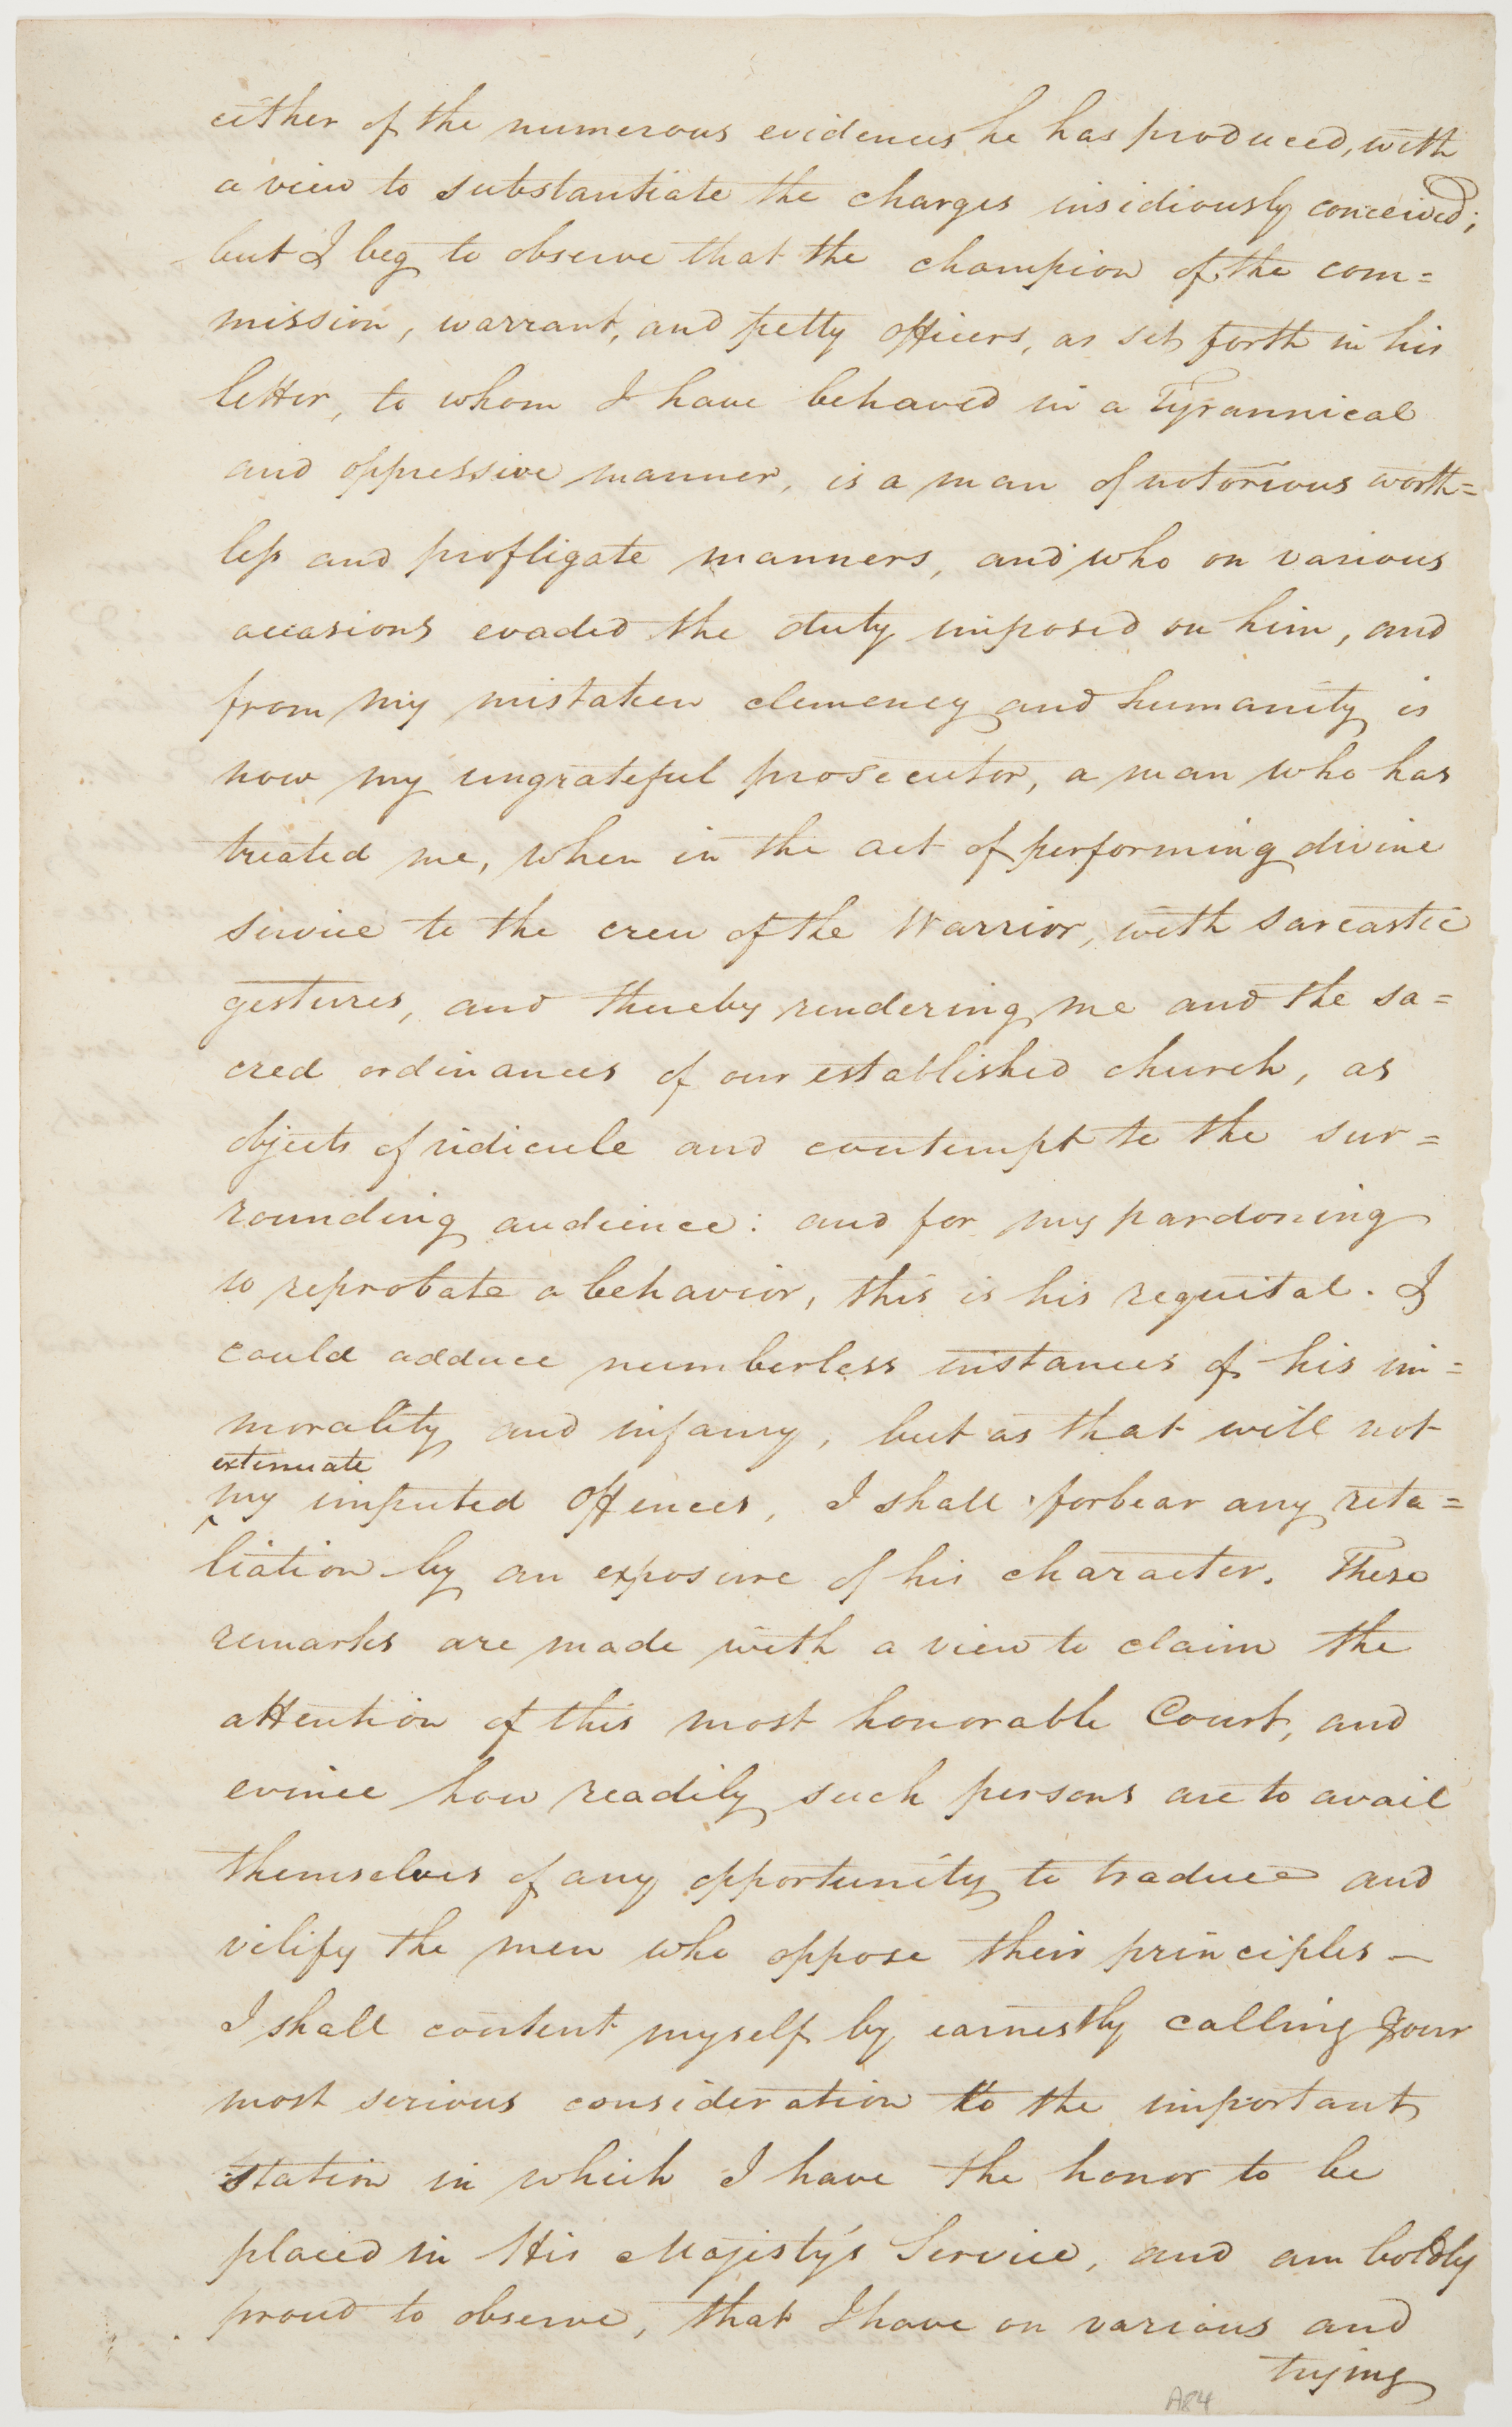 either of the numerous evidences he has produced, with
a view to substantiate the charges insidiously conceived;
but I beg to observe that the champion of the com=
mission, warrant, and petty officers, as set forth in his
letter, to whom I have behaved in a Tyrannical
and oppressive manner, is a man of notorious worth=
less and profligate manners, and who on various
occasions evaded the duty imposed on him, and
from my mistaken clemency and humanity is
now my ungrateful prosecutor, a man who has
treated me, when in the act of performing divine
service to the crew of the Warrior, with sarcastic
gestures, and thereby rendering me and the sa=
cred ordinances of our established church, as
objects of ridicule and contempt to the sur=
rounding audience: and for my pardoning
so reprobate a behavior, this is his requital. I
could adduce numberless instances of his im=
morality and infamy, but as that will not
extenuate
^ my imputed Offences, I shall forbear any reta=
liation by an exposure of his character. These
remarks are made with a view to claim the
attention of this most honorable Court, and
evince how readily such persons are to avail
themselves of any opportunity to traduce and
vilify the men who oppose their principles —
I shall content myself by earnestly calling your
most serious consideration to the important
station in which I have the honor to be
placed in His Majesty's Service, and am boldly
proud to observe, that I have on various and
trying
A84